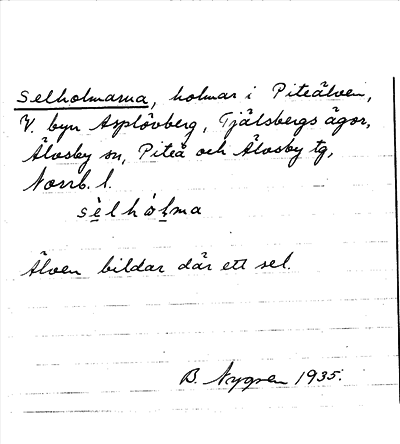 Selholmarna, holmar i Piteälven,
V. byn Asplövberg, Tjälsbergs ägor,
Älvsby sn, Piteå och Älvsby tg,
Norrb. l.
sè̱lhóḻma
Älven bildar där ett sel.
B. Nygren 1935.